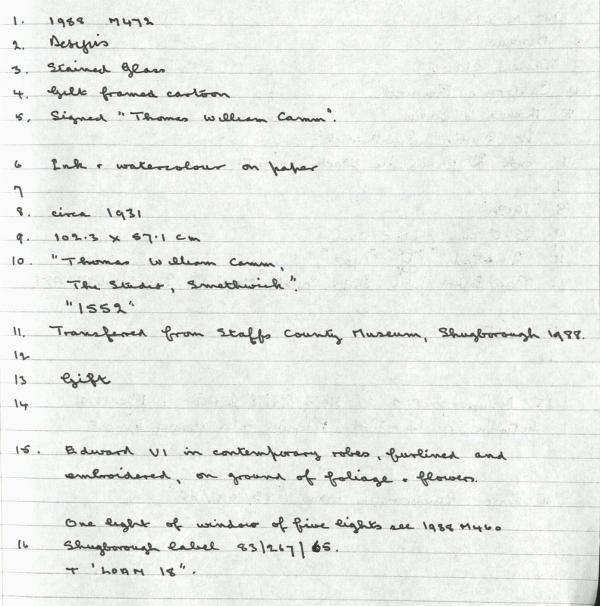 1. 1988 M472
2. Designs
3. Stained Glass
4. Gilt framed cartoon
5. Signed "Thomas William Camm".
6 Ink + watercolour on paper
7
8. circa 1931
9. 102.3 x 57.1 cm
10. "Thomas William Camm,
The Studio, Smethwick".
"1552"
11. Transferred from Staffs County Museum, Shugborough 1988.
12
13 Gift
14
15. Edward VI in contemporary robes, furlined and
embroidered, on ground of foliage + flowers.
One light of window of five lights see 1988 M460
16 Shugborough label 83/267/65.
+ 'LOAN 18".